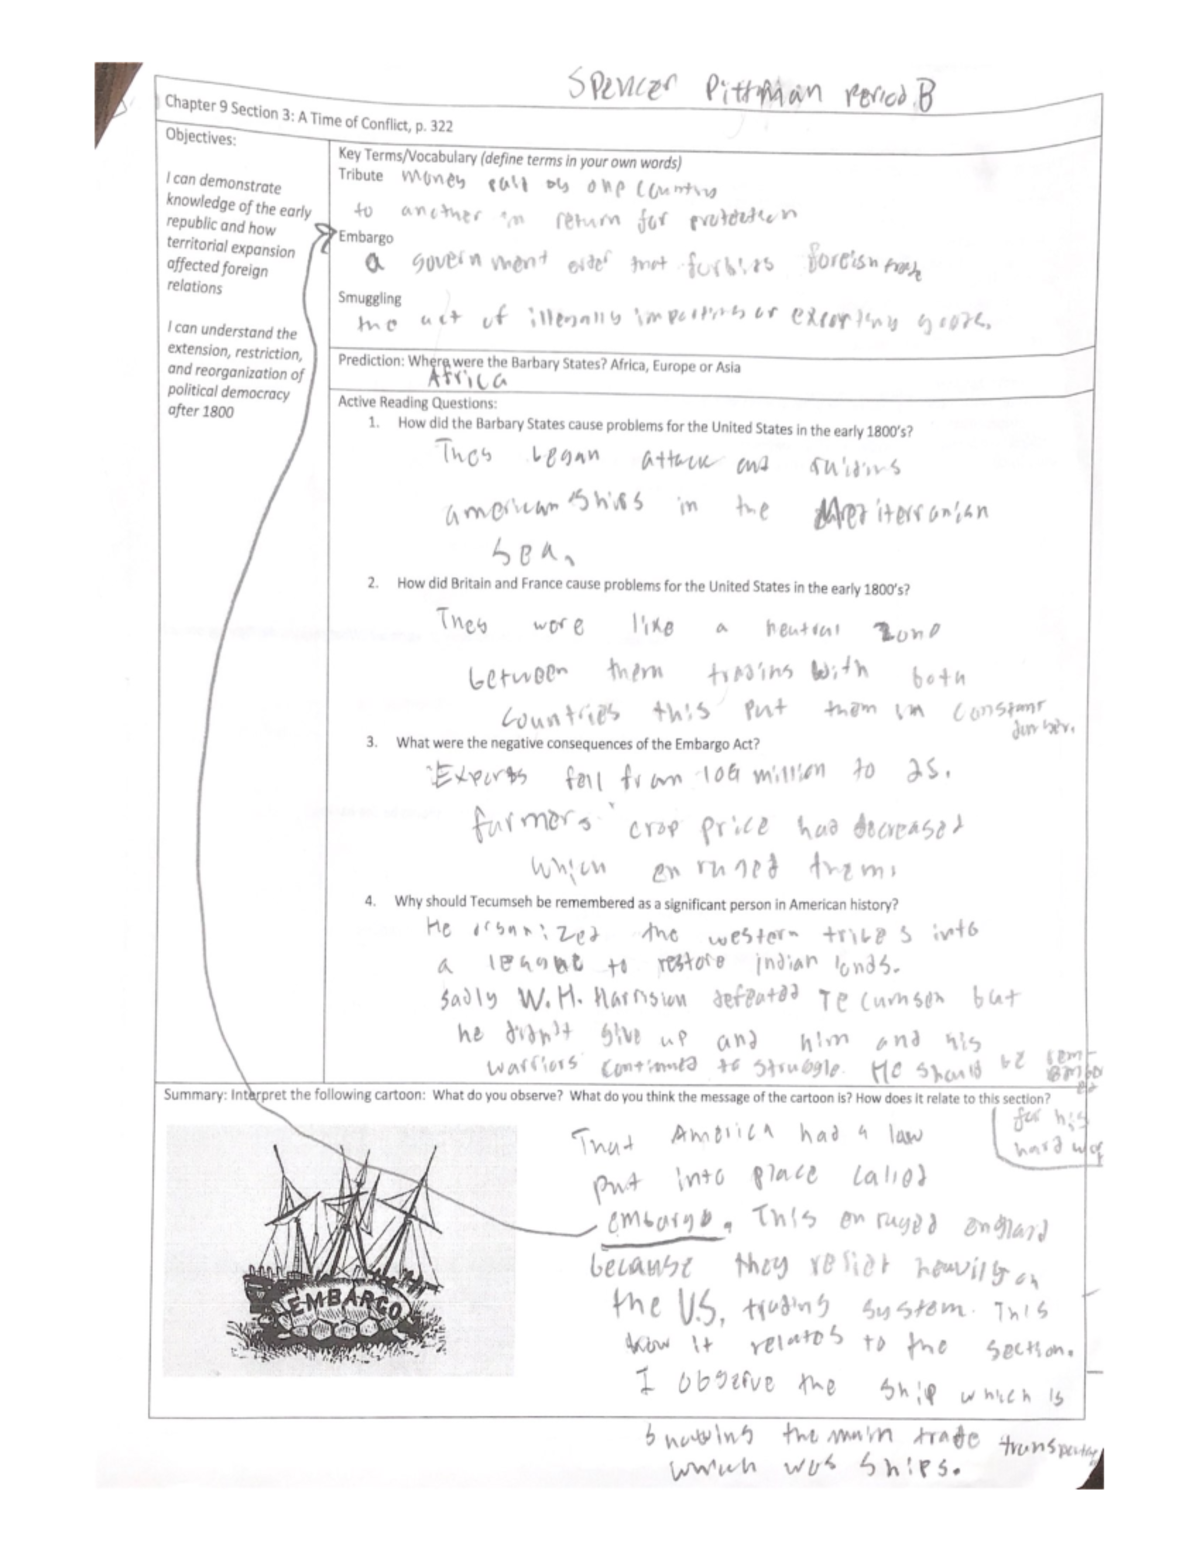 Spencer Pittman Period B
Chapter 9 Section 3: A Time of Conflict, p. 322
Objectives:
I can demonstrate
knowledge of the early
republic and how
territorial expansion
affected foreign
relations
I can understand the
extension, restriction,
and reorganization of
political democracy
after 1800
Key Terms/Vocabulary (define terms in your own words)
Tribute money paid by one country
to another in return for protection
Embargo
a government order that forbids foreign trade
Smuggling
the act of illegally importing or exporting goods.
Prediction: Where were the Barbary States? Africa, Europe or Asia
Africa
Active Reading Questions:
1. How did the Barbary States cause problems for the United States in the early 1800's?
They began attack and raiding
american ships in the Mediterranian
sea.
2. How did Britain and France cause problems for the United States in the early 1800's?
They were like a neutral zone
between them trading with both
countries this put them in constant
3. What were the negative consequences of the Embargo Act?
Exports fell from 109 million to 25.
farmers' crop price had decreased
which enraged them.
4. Why should Tecumseh be remembered as a significant person in American history?
He organized the western tribes into
a league to restore indian lands.
sadly W.H. Harrision defeated Tecumseh but
he didn't give up and him and his
warriors continued to struggle. He should be rem-
Summary: Interpret the following cartoon: What do you observe? What do you think the message of the cartoon is? How does it relate to this section?
for his
hard wo
EMBARGO
That America had a law
put into place called
embargo. This enraged england
because they relied heavily on
the U.S. trading system. This
how it relates to the section.
I observe the ship which is
showing the main trade
which was ships.